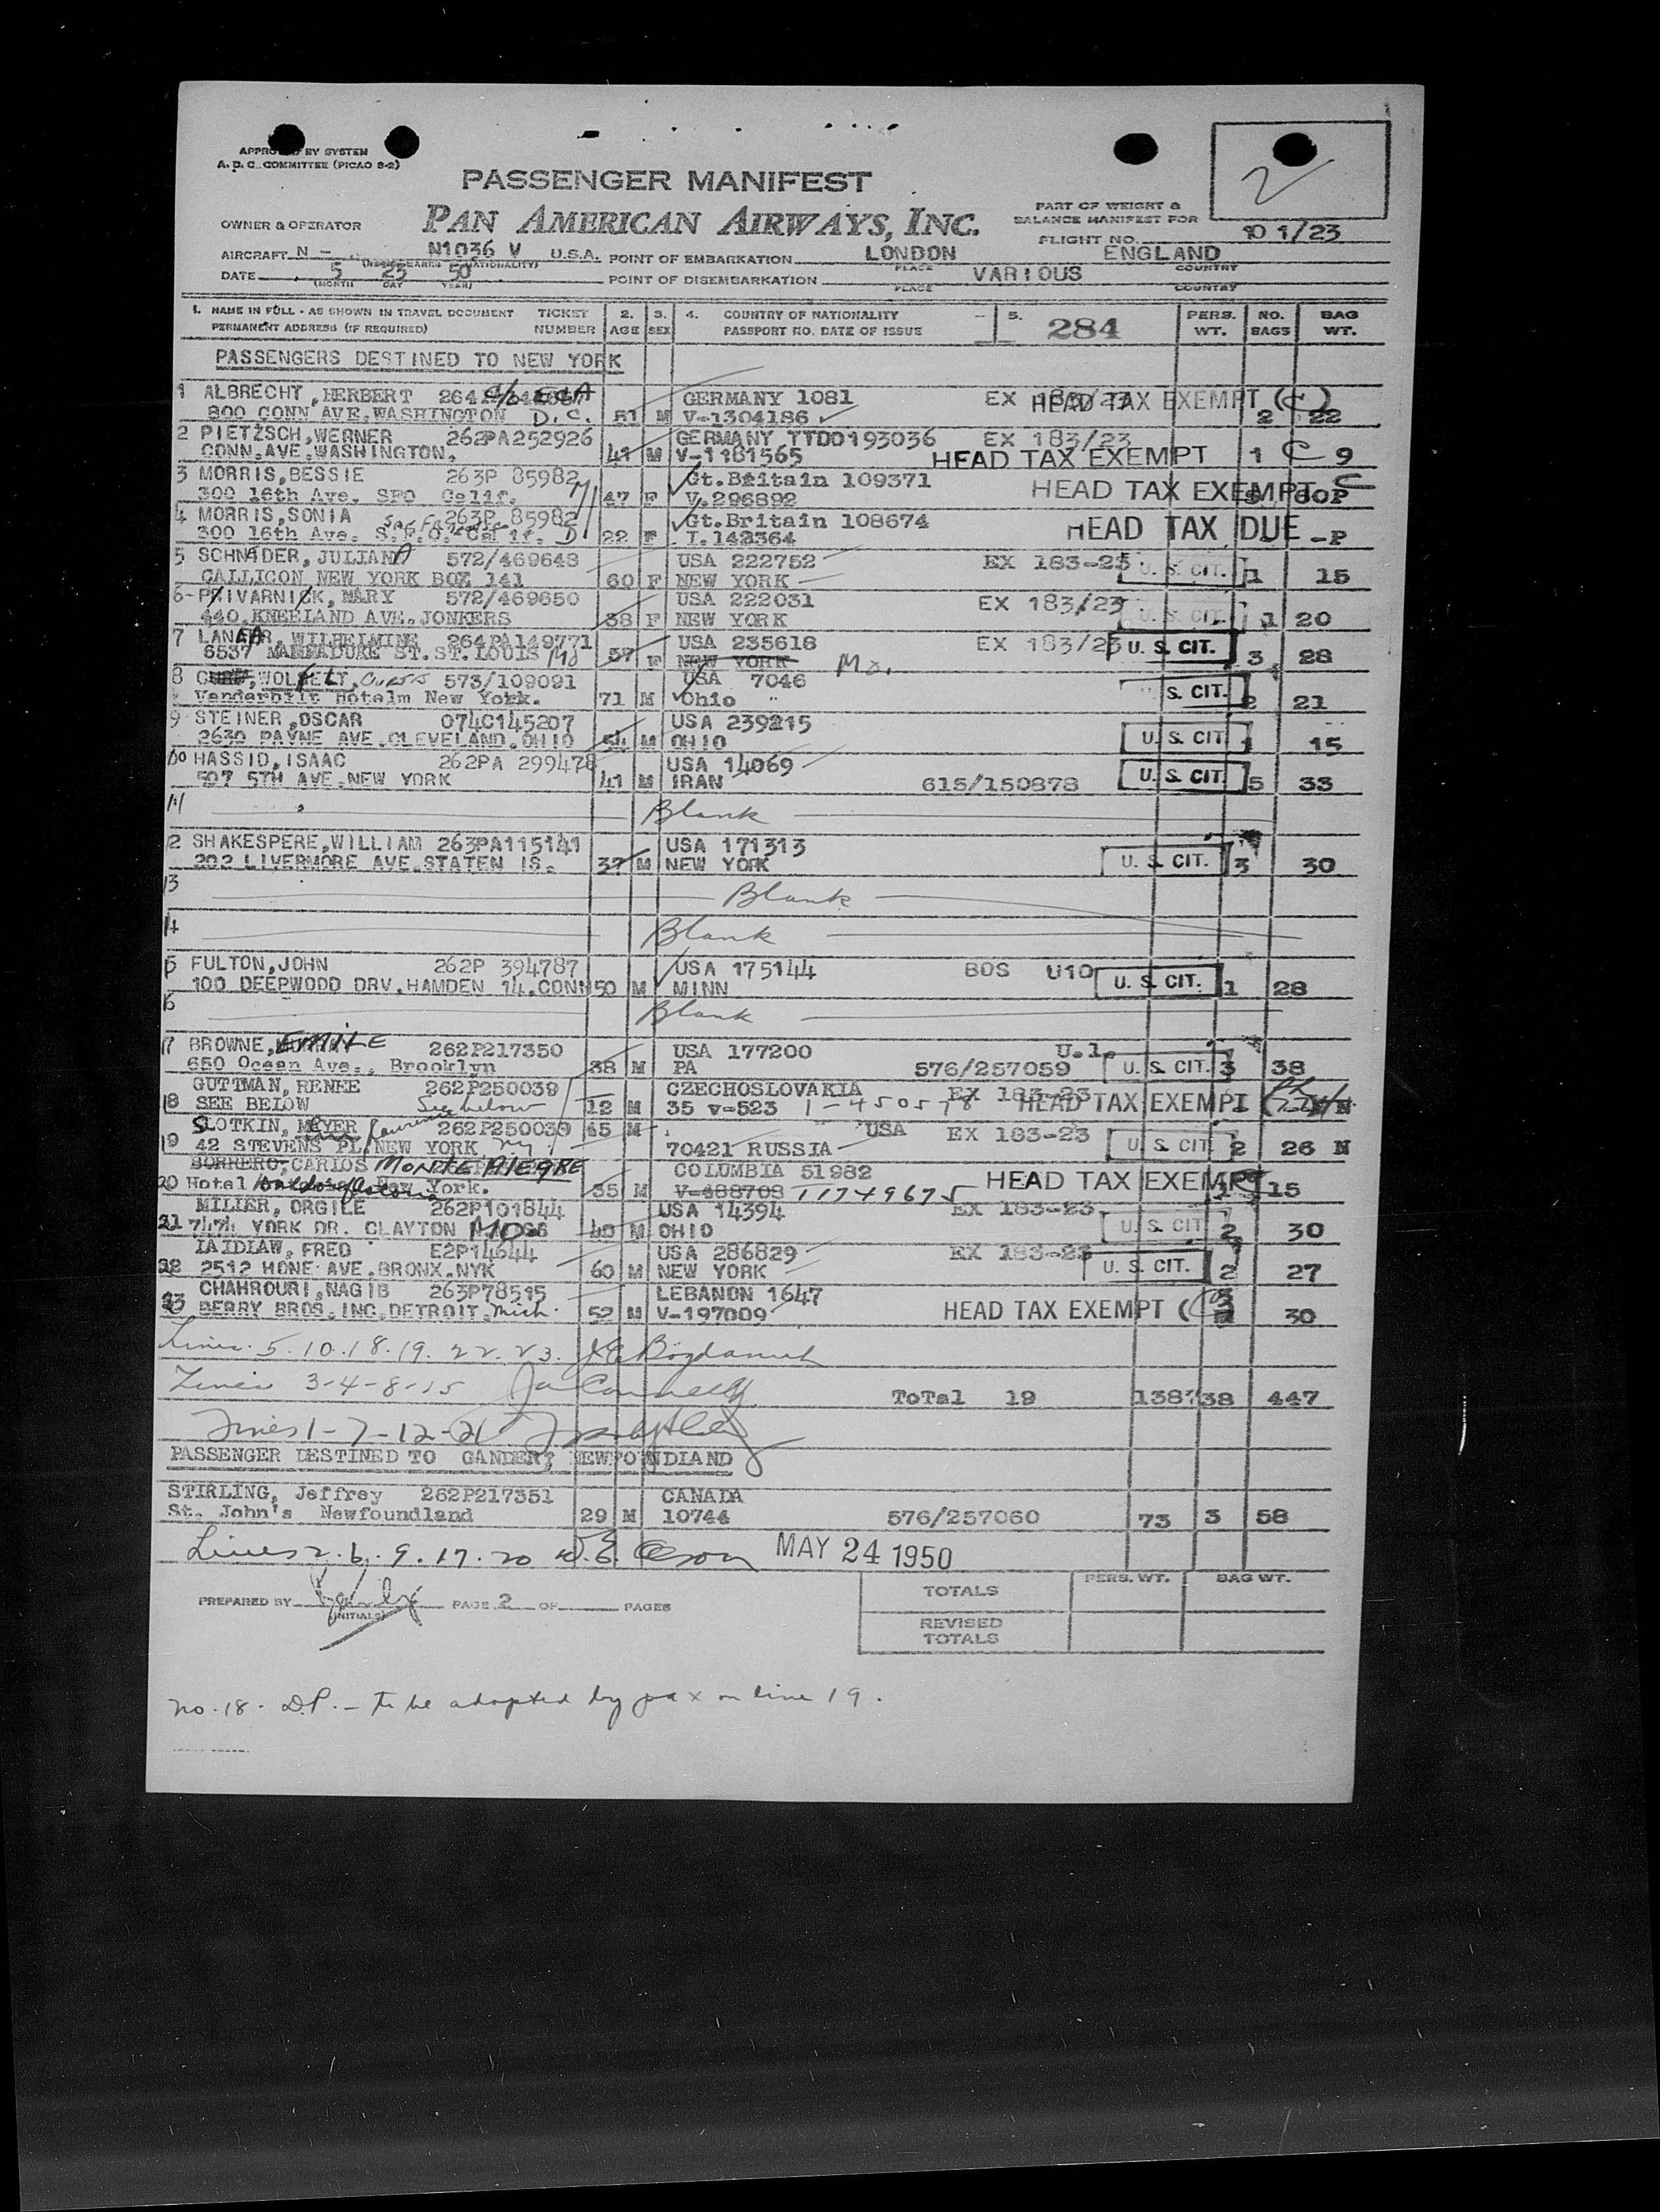 APPROVED BY SYSTEM
A. D. C. COMMITTEE (PICAO S-2)
2
PASSENGER MANIFEST
PART OF WEIGHT &
BALANCE MANIFEST FOR
OWNER & OPERATOR PAN AMERICAN AIRWAYS, INC.
FLIGHT NO. 101/23
AIRCRAFT N - N1036 V U.S.A. POINT OF EMBARKATION LONDON ENGLAND
PLACE COUNTRY
DATE 5 23 50 POINT OF DISEMBARKATION VARIOUS
(MONTH DAY YEAR) PLACE COUNTRY
1. NAME IN FULL - AS SHOWN IN TRAVEL DOCUMENT TICKET 2. 3. 4. COUNTRY OF NATIONALITY 5. 284 PERS. NO. BAG
PERMANENT ADDRESS (IF REQUIRED) NUMBER AGE SEX PASSPORT NO. DATE OF ISSUE WT. BAGS WT.
PASSENGERS DESTINED TO NEW YORK
1 ALBRECHT, HERBERT c/o ECA GERMANY 1081 EX 183/23 HEAD TAX EXEMPT (C)
800 CONN AVE, WASHINGTON D.C. 51 M V-1304186 2 22
2 PIETZSCH, WERNER 262PA252926 GERMANY TTD0193036 EX 183/23
CONN. AVE. WASHINGTON. 41 M V-1181565 HEAD TAX EXEMPT 1 C 9
3 MORRIS, BESSIE 263P 85982 Gt. Britain 109371
300 16th Ave. SFO Calif. 47 F V.296892 HEAD TAX EXEMPT C 60P
4 MORRIS, SONIA 263P 85982 Gt. Britain 108674
300 16th Ave. S.F.O. Calif. 22 F I.142364 HEAD TAX DUE -P
5 SCHNADER, JULIANA 572/469648 USA 222752 EX 183-23 U. S. CIT.
CALLICON NEW YORK BOX 141 60 F NEW YORK 1 15
6 PRIVARNICK, MARY 572/469650 USA 222031 EX 183/23 U. S. CIT.
440 KNEELAND AVE. JONKERS 38 F NEW YORK 1 20
7 WILHELMINE 264PA149771 USA 235618 EX 183/23 U. S. CIT.
6537 MARMADUKE ST. ST. LOUIS Mo 57 F NEW YORK Mo. 3 28
8 573/109091 USA 7046
Vanderbilt Hotelm New York. 71 M Ohio " S. CIT. 2 21
9 STEINER, OSCAR 074C145207 USA 239215
2630 PAYNE AVE. CLEVELAND. OHIO 54 M OHIO U. S. CIT. 1 15
10 HASSID, ISAAC 262PA 299478 USA 14069
507 5TH AVE. NEW YORK 41 M IRAN 615/150878 U. S. CIT. 5 33
11 Blank
12 SHAKESPERE, WILLIAM 263PA115141 USA 171313
202 LIVERMORE AVE. STATEN IS. 37 M NEW YORK U. S. CIT. 3 30
13 Blank
14 Blank
15 FULTON, JOHN 262P 394787 USA 175144 BOS U10
100 DEEPWOOD DRV. HAMDEN 14. CONN 50 M MINN U. S. CIT. 1 28
16 Blank
17 BROWNE, EMILE 262P217350 USA 177200 U.1.
650 Ocean Ave., Brooklyn 38 M PA 576/257059 U. S. CIT. 3 38
GUTTMAN, RENEE 262P250039 CZECHOSLOVAKIA EX 183-23
18 SEE BELOW See below 12 M 35 v-523 I-450578 HEAD TAX EXEMPT N
SLOTKIN, MEYER 262P250039 45 M USA EX 183-23
19 42 STEVENS PL, NEW YORK N.Y. 70421 RUSSIA U. S. CIT. 2 26 N
BORRERO, CARLOS MONTEALEGRE COLUMBIA 51982
20 Hotel Waldorf Astoria New York. 35 M V-488708 HEAD TAX EXEMPT 15
MILLER, ORGILE 262P101844 USA 14394 EX 183-23
21 7474 YORK DR. CLAYTON MO. 40 M OHIO U. S. CIT. 2 30
LAIDLAW, FRED E2P14644 USA 286829 EX 183-23
22 2512 HONE AVE. BRONX. NYK 60 M NEW YORK U. S. CIT. 2 27
CHAHROURI, NAGIB 263P78515 LEBANON 1647
23 BERRY BROS. INC. DETROIT. Mich. 52 M V-197009 HEAD TAX EXEMPT 30
Lines 5. 10. 18. 19. 22. 23.
Lines 3-4-8-15 ToTal 19 1387 38 447
Lines 1-7-12-21
PASSENGER DESTINED TO GANDER, NEWFOUNDLAND
STIRLING, Jeffrey 262P217351 CANADA
St. John's Newfoundland 29 M 10744 576/257060 73 3 58
Lines 2. 6. 9. 17. 20 MAY 24 1950
PREPARED BY (INITIALS) PAGE 2 OF PAGES
PERS. WT. BAG WT.
TOTALS
REVISED
TOTALS
no. 18 - D.P. - to be adopted by pax on line 19.